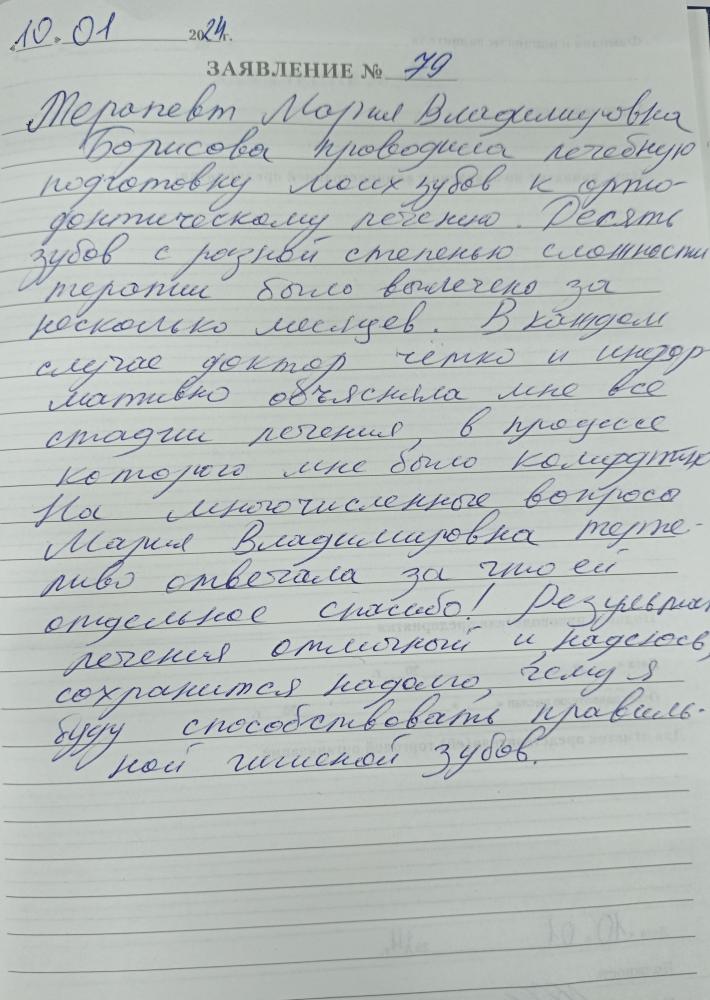 10.01 2024г.
ЗАЯВЛЕНИЕ № 79
Терапевт Мария Владимировна
Борисова проводила лечебную
подготовку моих зубов к орто-
донтическому лечению. Десять
зубов с разной степенью сложности
терапии было вылечено за
несколько месяцев. В каждом
случае доктор четко и инфор
мативно объясняла мне все
стадии лечения, в процессе
которого мне было комфортно
На многочисленные вопросы
Мария Владимировна терпе-
ливо отвечала за что ей
отдельное спасибо! Результат
лечения отличный и, надеюсь,
сохранится надолго, чему я
буду способствовать правиль-
ной гигиеной зубов.